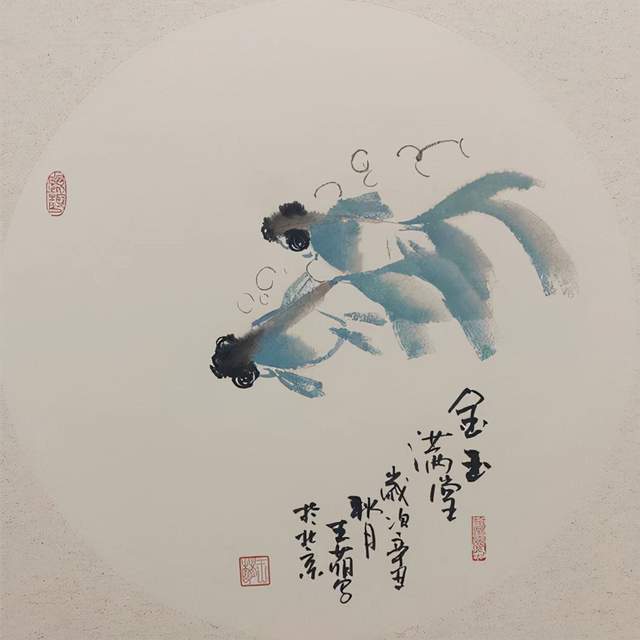 金玉
满堂
岁次辛丑
秋月
王萌写
于北京